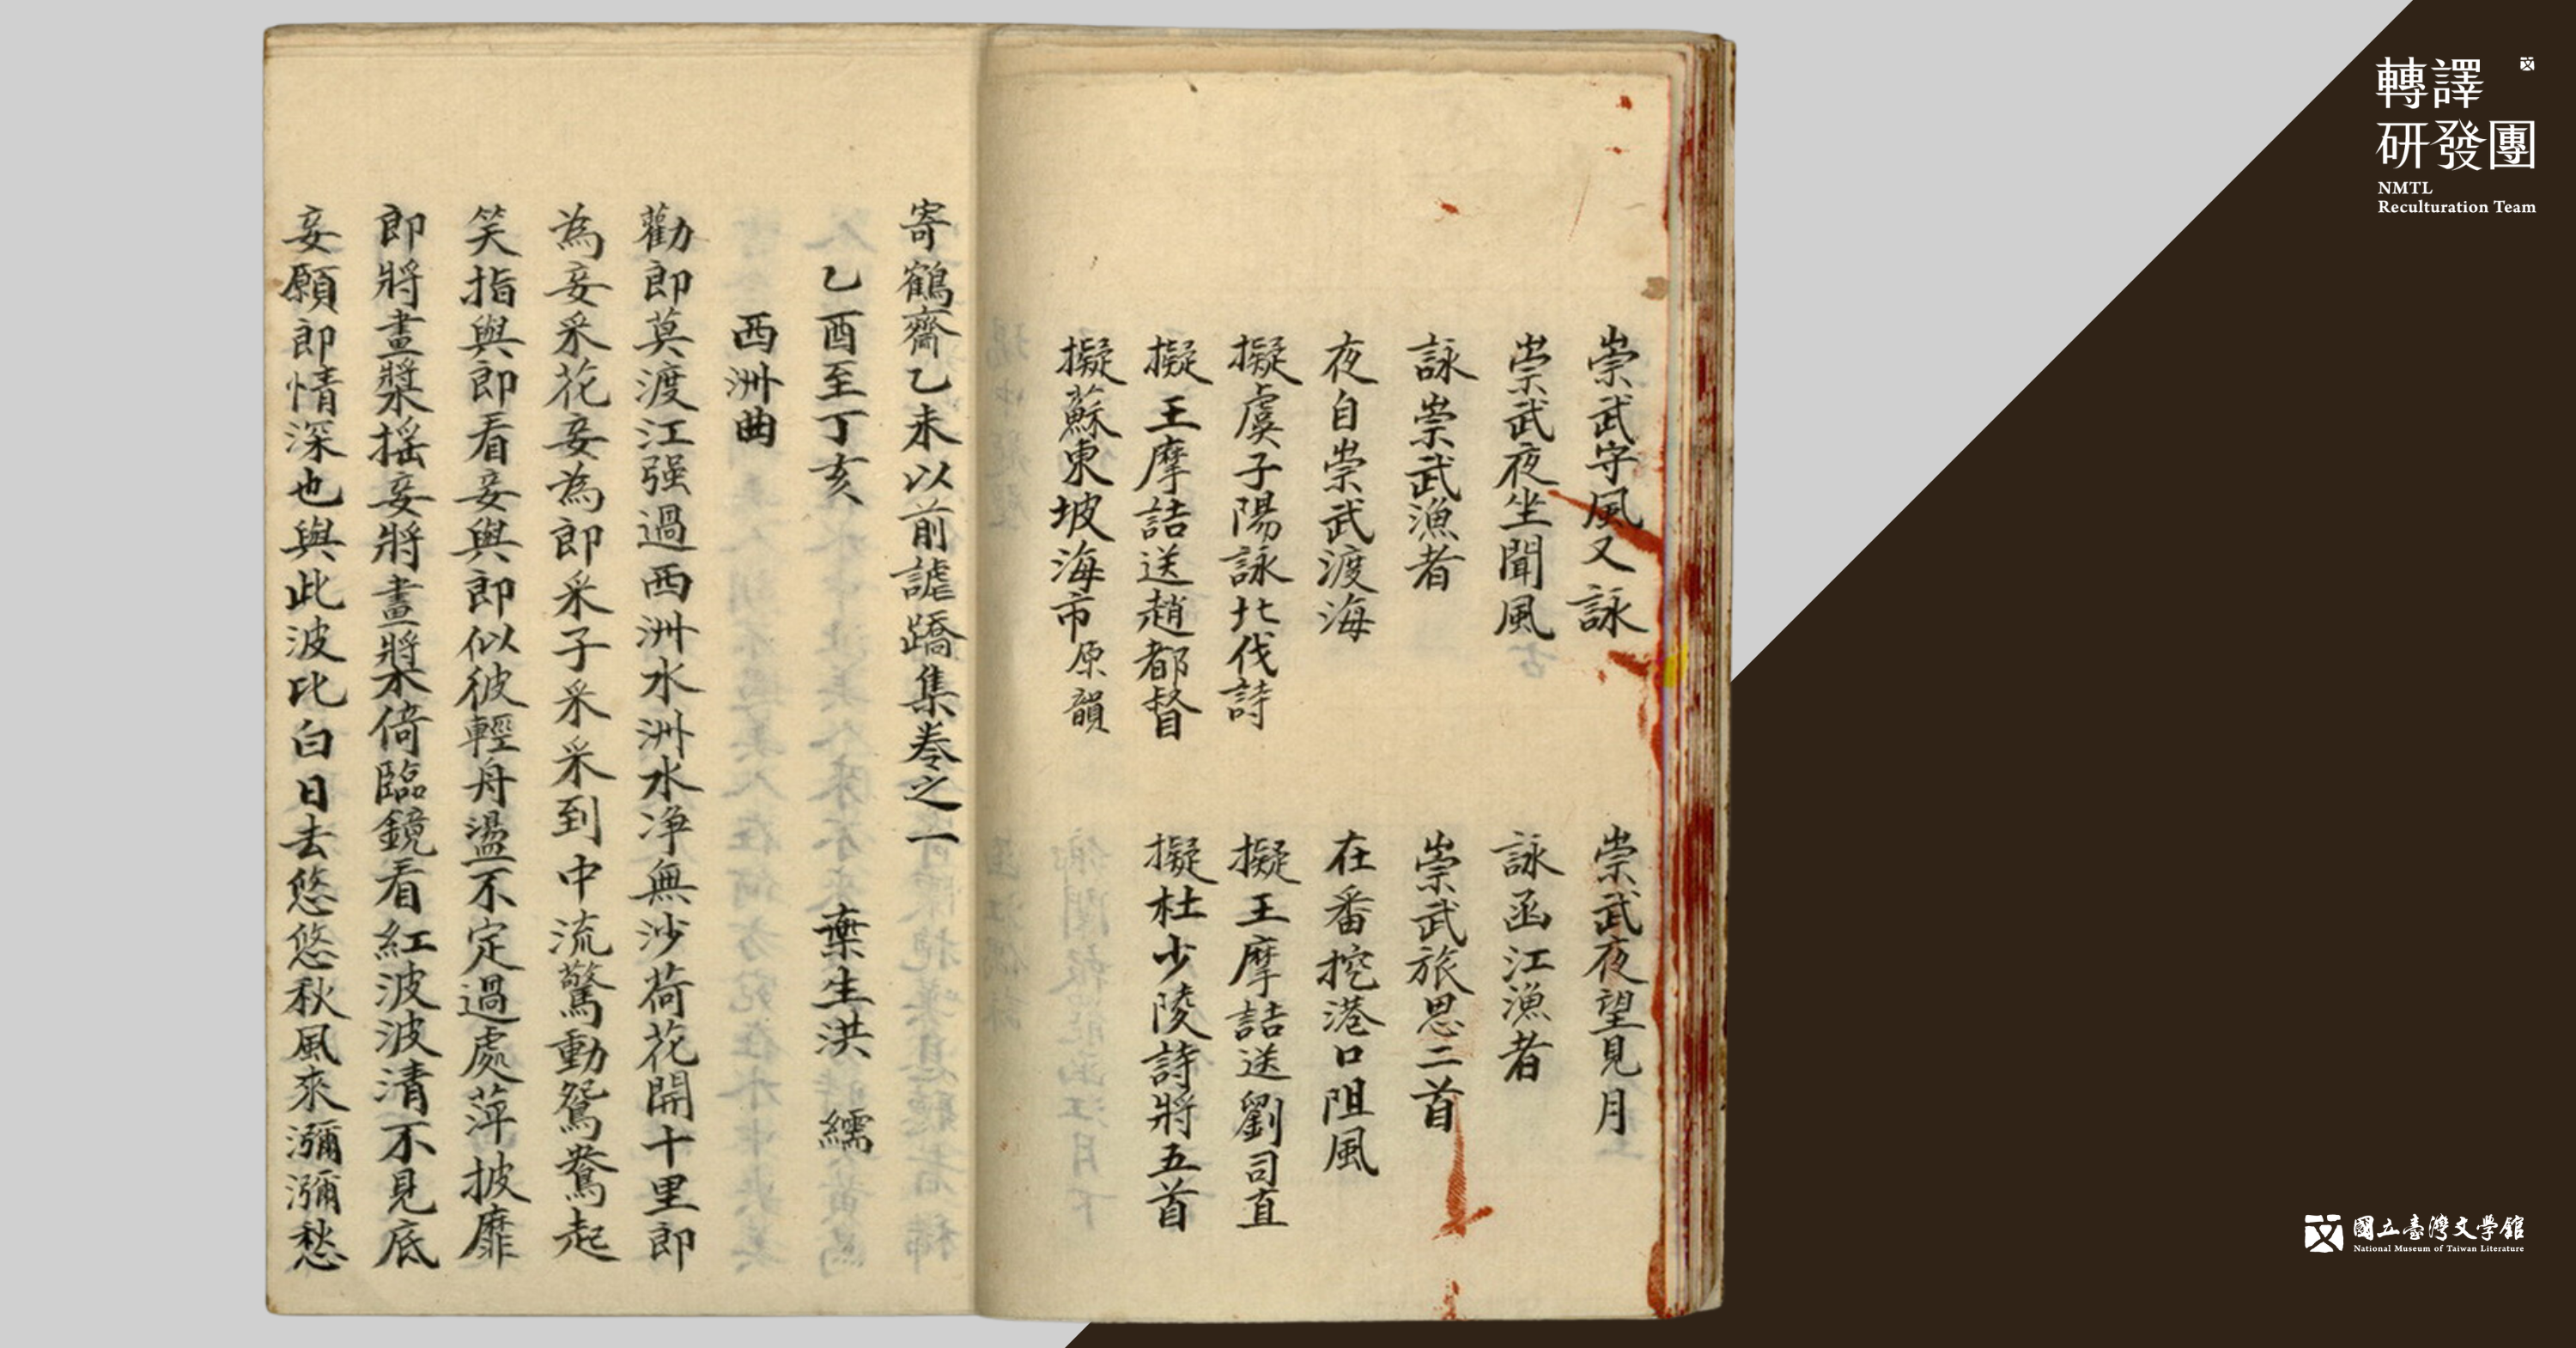 崇武守風又詠
崇武夜望見月
崇武夜坐聞風
詠函江漁者
詠崇武漁者
崇武旅思二首
夜自崇武渡海
在番挖港口阻風
擬虞子陽詠北伐詩
擬王摩詰送劉司直
擬王摩詰送趙都督
擬杜少陵詩將五首
擬蘇東坡海市原韻
寄鶴齋乙未以前謔蹻集卷之一
乙酉至丁亥 棄生洪繻
西洲曲
勸郎莫渡江强過西洲水洲水净無沙荷花開十里郎
為妾采花妾為郎采子采采到中流驚動鴛鴦起
笑指與郎看妾與郎似彼輕舟盪不定過處萍披靡
郎將畫槳搖妾將畫槳倚臨鏡看紅波波清不見底
妾願郎情深也與此波比白日去悠悠秋風來瀰瀰愁
轉譯
研發團
NMTL
Reculturation Team
國立臺灣文學館
National Museum of Taiwan Literature